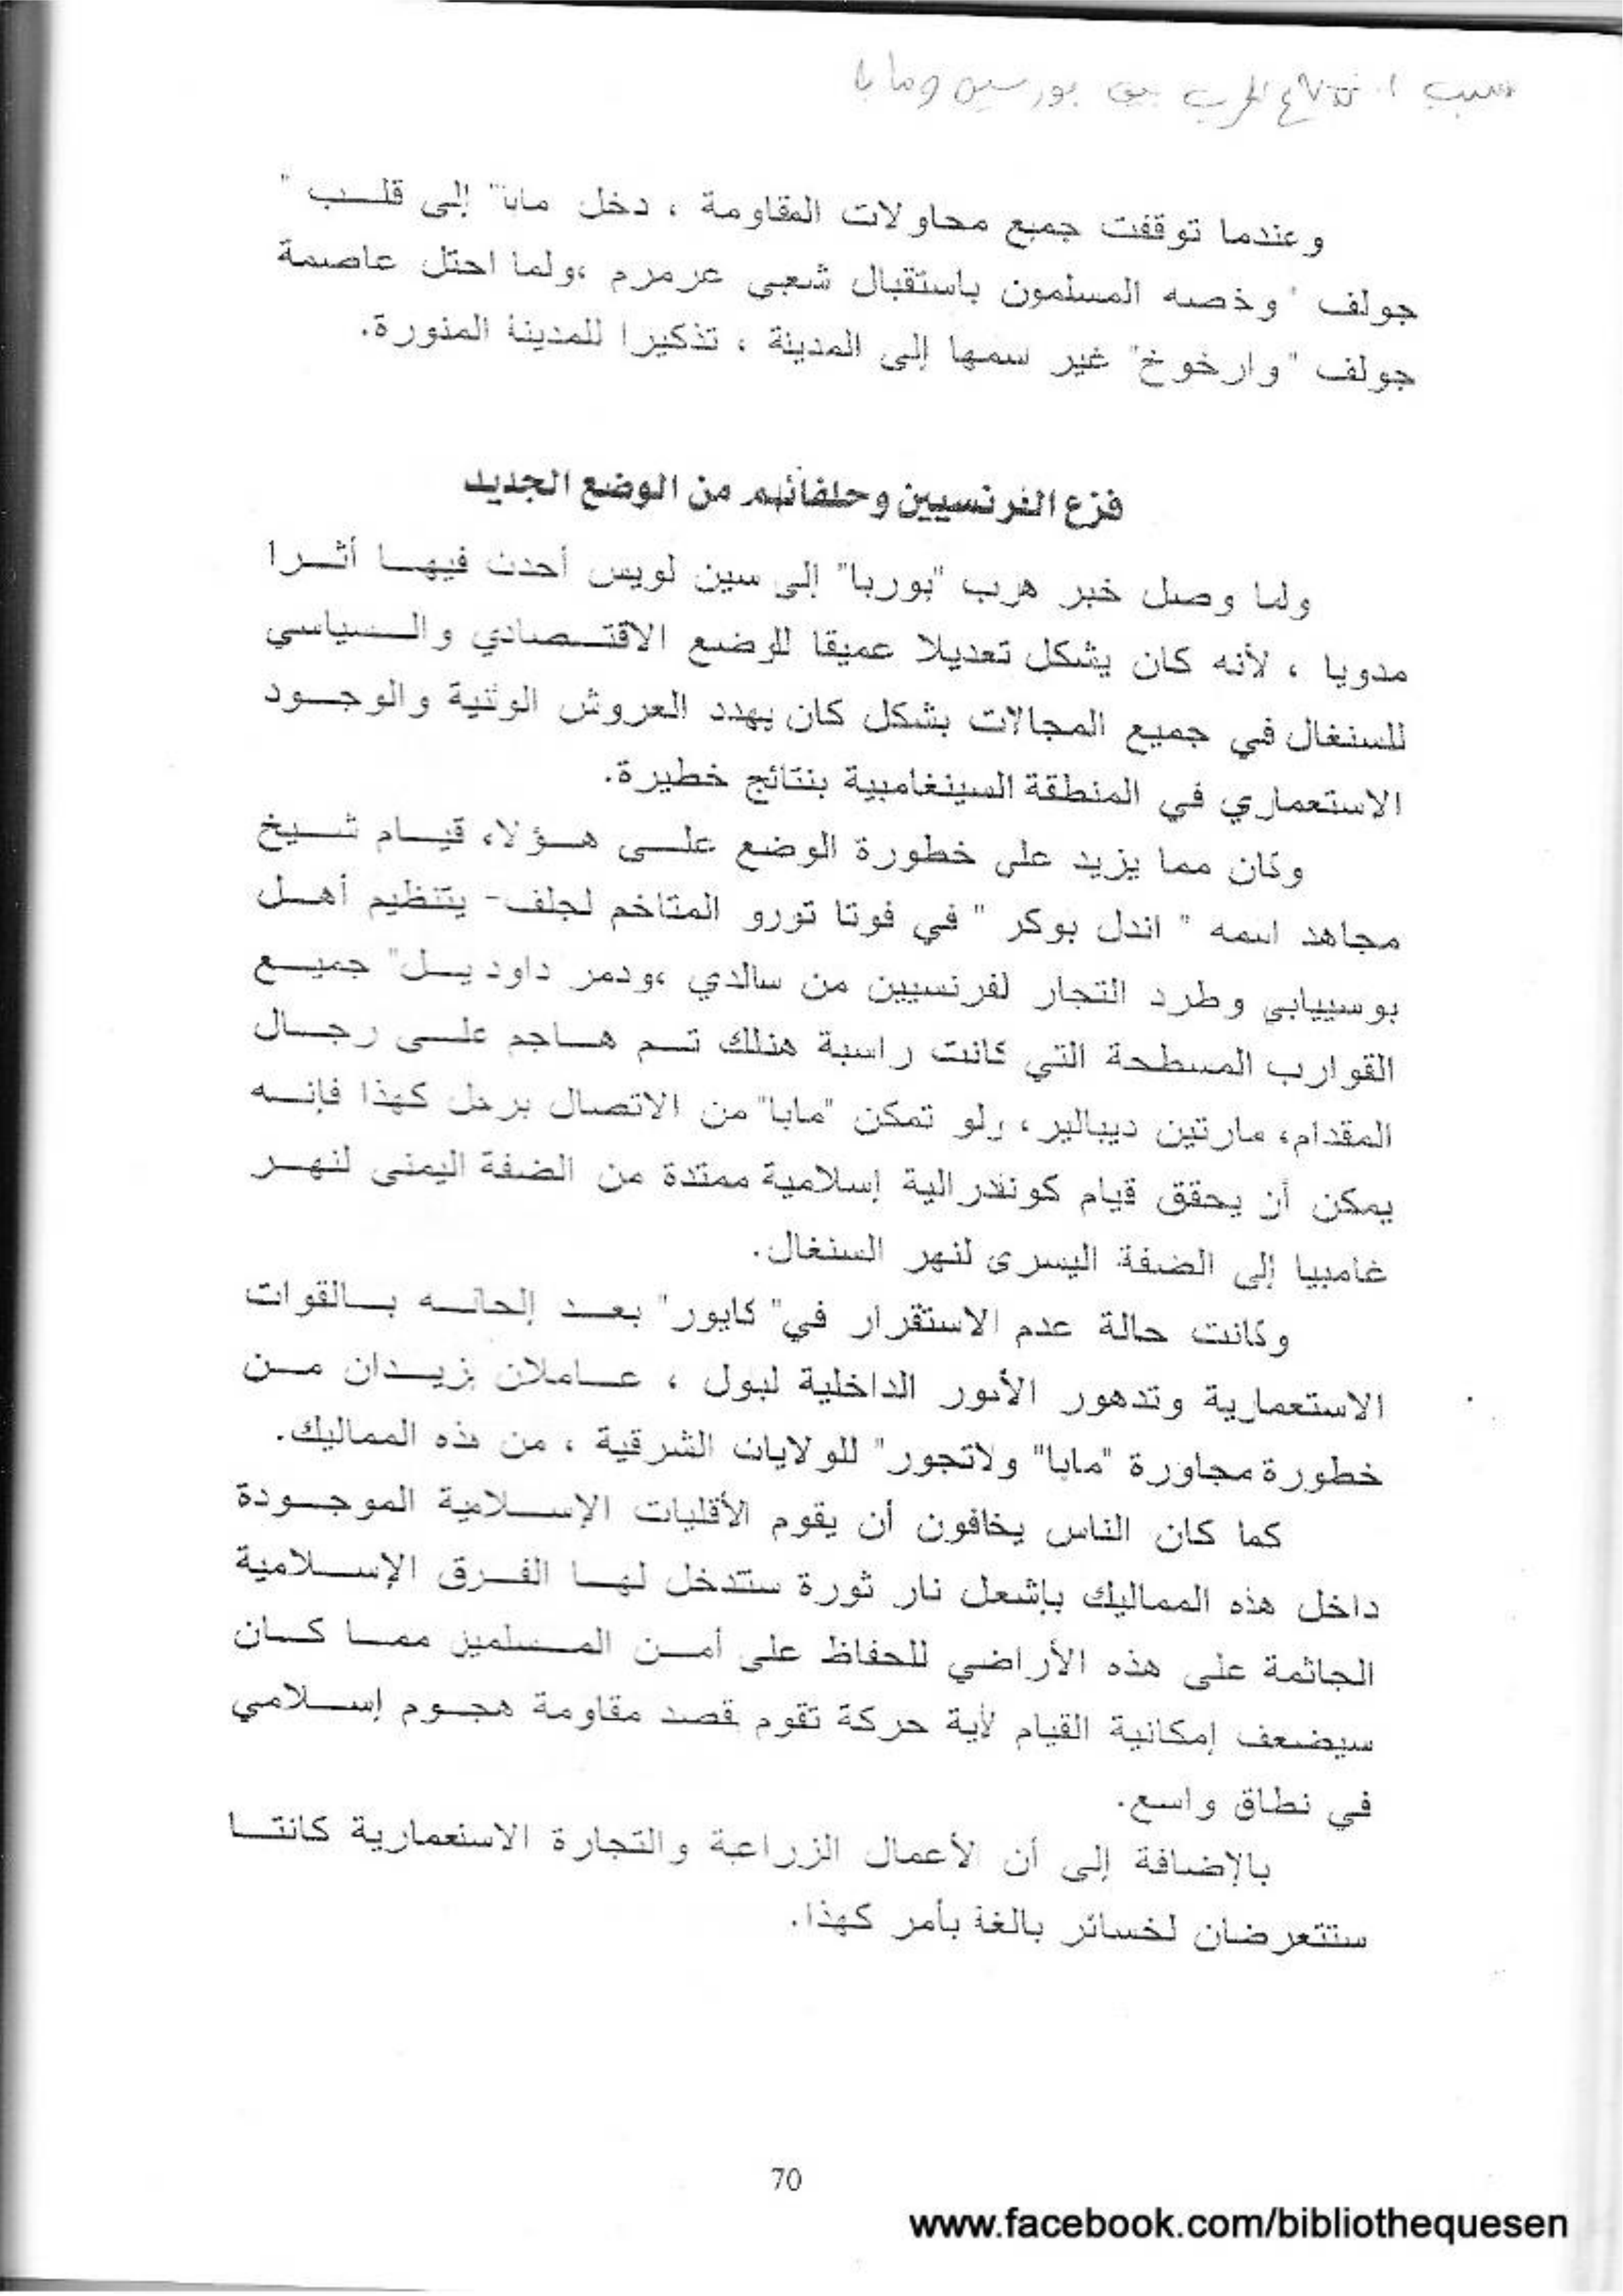 سبب اندلاع الحرب بين بورسين ومابا
وعندما توقفت جميع محاولات المقاومة ، دخل مابا" إلى قلب "
جولف " وخصه المسلمون باستقبال شعبى عرمرم ،ولما احتل عاصمة
جولف "وارخوخ" غير سمها إلى المدينة ، تذكيرا للمدينة المنورة.
فزع الفرنسيين وحلفائهم من الوضع الجديد
ولما وصل خبر هرب "بوربا" إلى سين لويس أحدث فيها أثرا
مدويا ، لأنه كان يشكل تعديلا عميقا للوضع الاقتصادي والسياسي
للسنغال في جميع المجالات بشكل كان يهدد العروش الوثنية والوجود
الاستعماري في المنطقة السينغامبية بنتائج خطيرة.
وكان مما يزيد على خطورة الوضع على هؤلاء قيام شيخ
مجاهد اسمه " اندل بوكر " في فوتا تورو المتاخم لجلف- بتنظيم أهل
بوسييابي وطرد التجار لفرنسيين من سالدي ،ودمر داود يل" جميع
القوارب المسطحة التي كانت راسبة هنلك تم هاجم على رجال
المقدام، مارتين ديبالير، ولو تمكن "مابا" من الاتصال برجل كهذا فإنه
يمكن أن يحقق قيام كونفدرالية إسلامية ممتدة من الضفة اليمنى لنهر
غامبيا إلى الضفة اليسرى لنهر السنغال.
وكانت حالة عدم الاستقرار في" كايور" بعد إلحاقه بالقوات
الاستعمارية وتدهور الأمور الداخلية لبول ، عاملان يزيدان من
خطورة مجاورة "مابا" ولاتجور" للولايات الشرقية ، من هذه المماليك.
كما كان الناس يخافون أن يقوم الأقليات الإسلامية الموجودة
داخل هذه المماليك بإشعل نار ثورة ستتدخل لها الفرق الإسلامية
الجاثمة على هذه الأراضي للحفاظ على أمن المسلمين مما كان
سيضعف إمكانية القيام لأية حركة تقوم بقصد مقاومة هجوم إسلامي
في نطاق واسع.
بالإضافة إلى أن الأعمال الزراعية والتجارة الاستعمارية كانتا
ستتعرضان لخسائر بالغة بأمر كهذا.
70
www.facebook.com/bibliothequesen